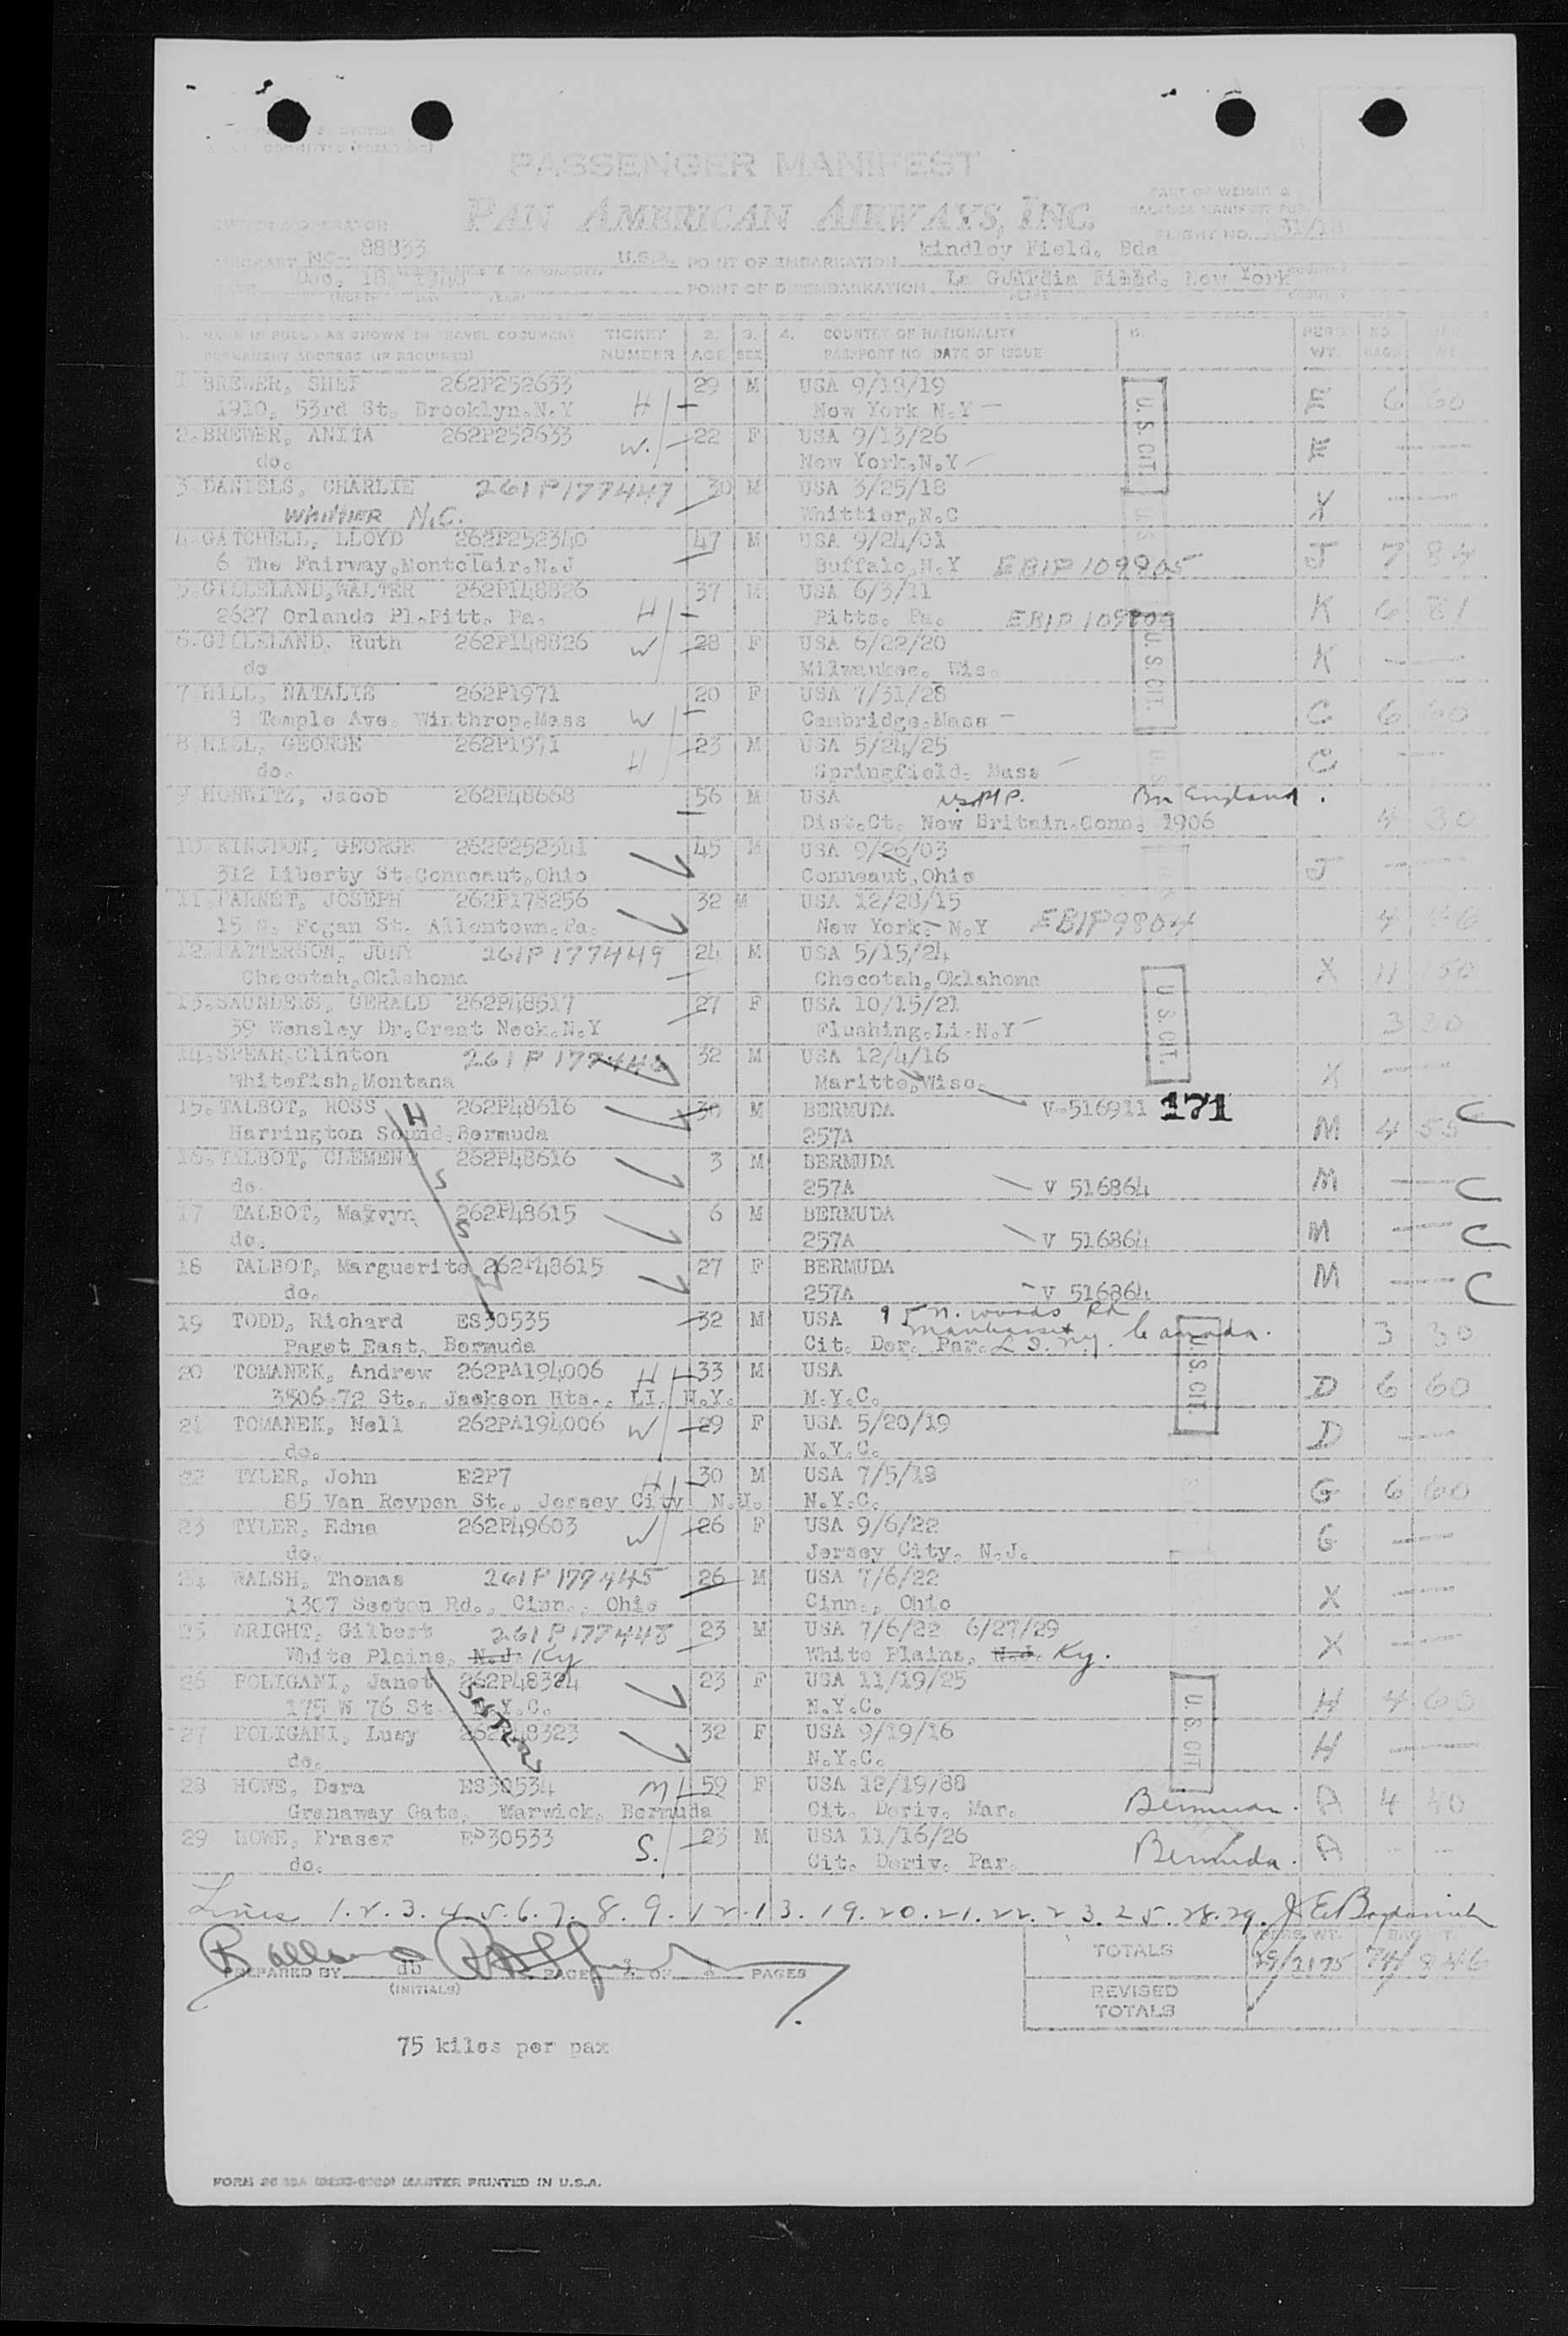 PASSENGER MANIFEST
PAN AMERICAN AIRWAYS, INC.
PART OF WEIGHT &
BALANCE MANIFEST FOR
FLIGHT NO.
OWNER OR OPERATOR
AIRCRAFT NC- 88833 U.S.A. POINT OF EMBARKATION Kindley Field. Bda
Dec. 18, 1948 POINT OF DISEMBARKATION La Guardia Field. New York
(MONTH) DAY YEAR) PLACE COUNTRY
1. NAME IN FULL - AS SHOWN IN TRAVEL DOCUMENT TICKET 2. 3. 4. COUNTRY OF NATIONALITY 6. PERS. NO.
PERMANENT ADDRESS (IF REQUIRED) NUMBER AGE SEX PASSPORT NO. DATE OF ISSUE WT. BAGS WT.
1 BREWER, SHEP 262P252633 29 M USA 9/18/19 E 6 60
1910, 53rd St. Brooklyn.N.Y H New York N.Y U.S. CIT.
2. BREWER, ANITA 262P252633 W. 22 F USA 9/13/26 E
do. New York.N.Y
3 DANIELS, CHARLIE 261P177447 30 M USA 3/25/18 X
WHITTIER N.C. Whittier,N.C
4.GATCHELL, LLOYD 262P252340 47 M USA 9/24/01 J 7 84
6 The Fairway,Montclair.N.J Buffalo,N.Y EBIP109905
5.GILLELAND,WALTER 262P148826 37 M USA 6/3/11 K 6 81
2627 Orlando Pl.Pitt. Pa. H Pitts. Pa. EBIP
6.GILLELAND, Ruth 262P148826 W 28 F USA 6/22/20 K
do Milwaukee. Wis. U.S. CIT.
7.HILL, NATALIE 262P1971 20 F USA 7/31/28 C 6 60
8 Temple Ave. Winthrop.Mass W Cambridge.Mass
8.HILL, GEORGE 262P1971 23 M USA 5/24/25 C
do. H Springfield. Mass
9.HORWITZ, Jacob 262P48668 56 M USA USPP. Bn England. 4 30
Dist.Ct. New Britain.Conn. 1906
10 KINGDON, GEORGE 262P252341 45 M USA 9/26/03 J
312 Liberty St.Conneaut,Ohio Conneaut,Ohio
11.PARNET, JOSEPH 262P178256 32 M USA 12/28/15 4 46
15 N. Fogan St. Allentown.Pa. New York. N.Y EBIP9804
12.PATTERSON, JUNY 261P177449 24 M USA 5/15/24 X 11 150
Checotah,Oklahoma Checotah,Oklahoma
13.SAUNDERS, GERALD 262P48517 27 F USA 10/15/21 3 30
39 Wensley Dr.Great Neck.N.Y Flushing.Li.N.Y U.S. CIT.
14.SPEAR,Clinton 261P177446 32 M USA 12/4/16 X
Whitefish,Montana Maritte,Wisc.
15. TALBOT, ROSS H 262P48616 30 M BERMUDA V-516911 171 M 4 55 C
Harrington Sound.Bermuda 257A
16.TALBOT, CLEMENT 262P48616 3 M BERMUDA M C
do. S 257A V 516864
17 TALBOT, Marvyn 262P48615 6 M BERMUDA M C
do. S 257A V 516864
18 TALBOT, Marguerite 262P48615 27 F BERMUDA M C
do. W 257A V 516864
19 TODD, Richard ES30535 32 M USA 95 N. Woods Rd 3 30
Paget East, Bermuda Cit. Der. Par. Manhasset L.I. N.Y. Canada.
20 TOMANEK, Andrew 262PA194006 H 33 M USA U.S. CIT. D 6 60
3506-72 St., Jackson Hts., LI, N.Y. N.Y.C.
21 TOMANEK, Nell 262PA194006 W 29 F USA 5/20/19 D
do. N.Y.C.
22 TYLER, John E2P7 H 30 M USA 7/5/18 G 6 60
85 Van Reypen St., Jersey City N.J. N.Y.C.
23 TYLER, Edna 262P49603 W 26 F USA 9/6/22 G
do. Jersey City, N.J.
24 WALSH, Thomas 261P177445 26 M USA 7/6/22 X
1307 Secton Rd., Cinn., Ohio Cinn., Ohio
25 WRIGHT, Gilbert 261P177448 23 M USA 7/6/22 6/27/29 X
White Plains, N.J. Ky White Plains, N.J. Ky.
26 POLIGANI, Janet 262P48324 23 F USA 11/19/25 H 4 60
175 W 76 St. N.Y.C. SISTERS N.Y.C. U.S. CIT.
27 POLIGANI, Lucy 262P48323 32 F USA 9/19/16 H
do. N.Y.C.
28 HOWE, Dora ES30534 M 59 F USA 12/19/88 A 4 40
Granaway Gate, Warwick, Bermuda Cit. Deriv. Mar. Bermuda.
29 HOWE, Fraser ES30533 S. 23 M USA 11/16/26 A
do. Cit. Deriv. Par. Bermuda.
Lines 1.2.3.4.5.6.7.8.9.12.13.19.20.21.22.23.25.28.29.
PREPARED BY do PAGE 1 OF 1 PAGES
(INITIALS)
TOTALS PERS. WT. 29/2175 74/846
REVISED
TOTALS
75 kilos per pax
MASTER PRINTED IN U.S.A.